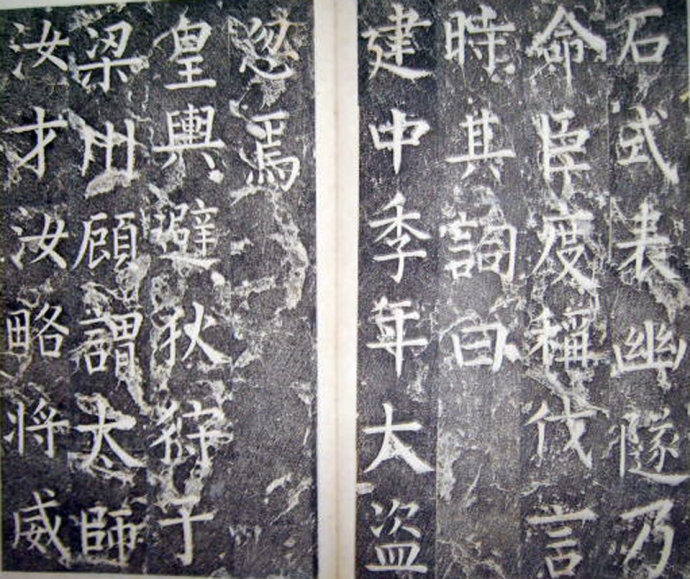 石式表幽隧乃
命臣度稱伐言
時其詞曰
建中季年大盜
忽焉
皇輿避狄狩于
梁州顧謂太師
汝才汝略將威